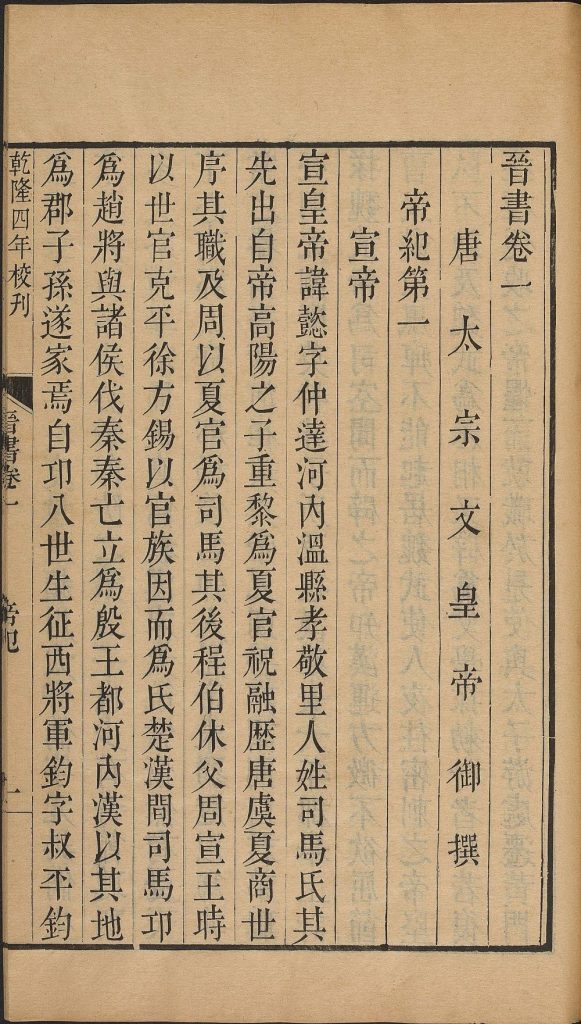 晉書卷一
唐太宗文皇帝御撰
帝紀第一
宣帝
宣皇帝諱懿字仲達河內溫縣孝敬里人姓司馬氏其
先出自帝高陽之子重黎爲夏官祝融歷唐虞夏商世
序其職及周以夏官爲司馬其後程伯休父周宣王時
以世官克平徐方錫以官族因而爲氏楚漢間司馬卬
爲趙將與諸侯伐秦秦亡立爲殷王都河內漢以其地
爲郡子孫遂家焉自卬八世生征西將軍鈞字叔平鈞
乾隆四年校刊
晉書卷一 帝紀 一